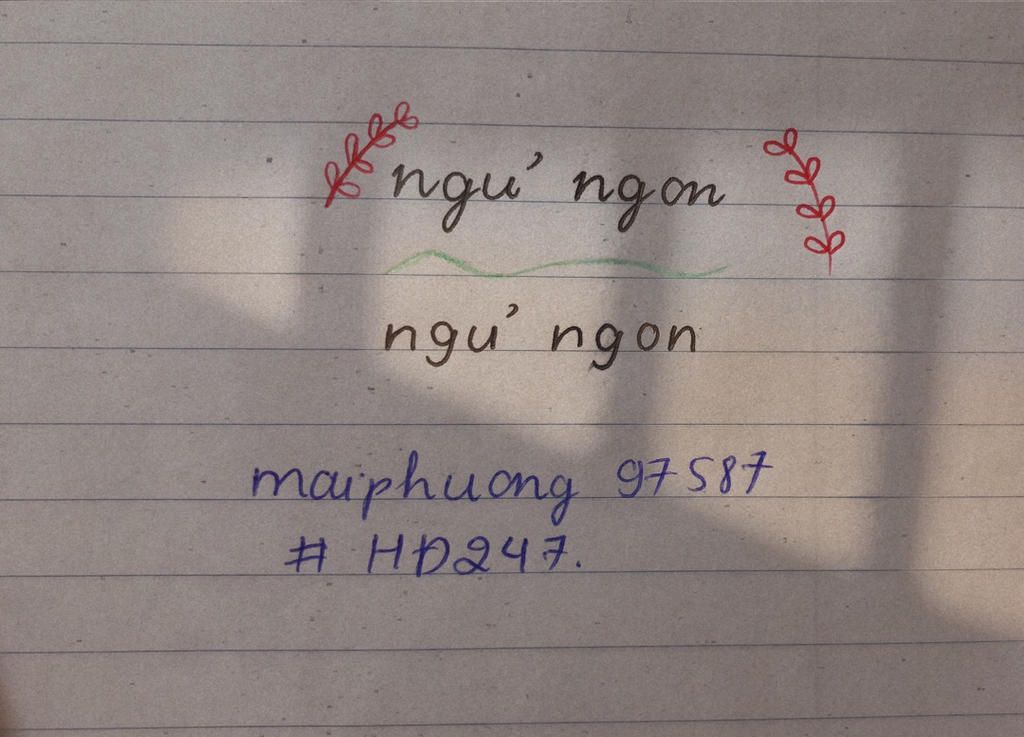 ngủ ngon
ngủ ngon
maiphuong 97587
# HD247.